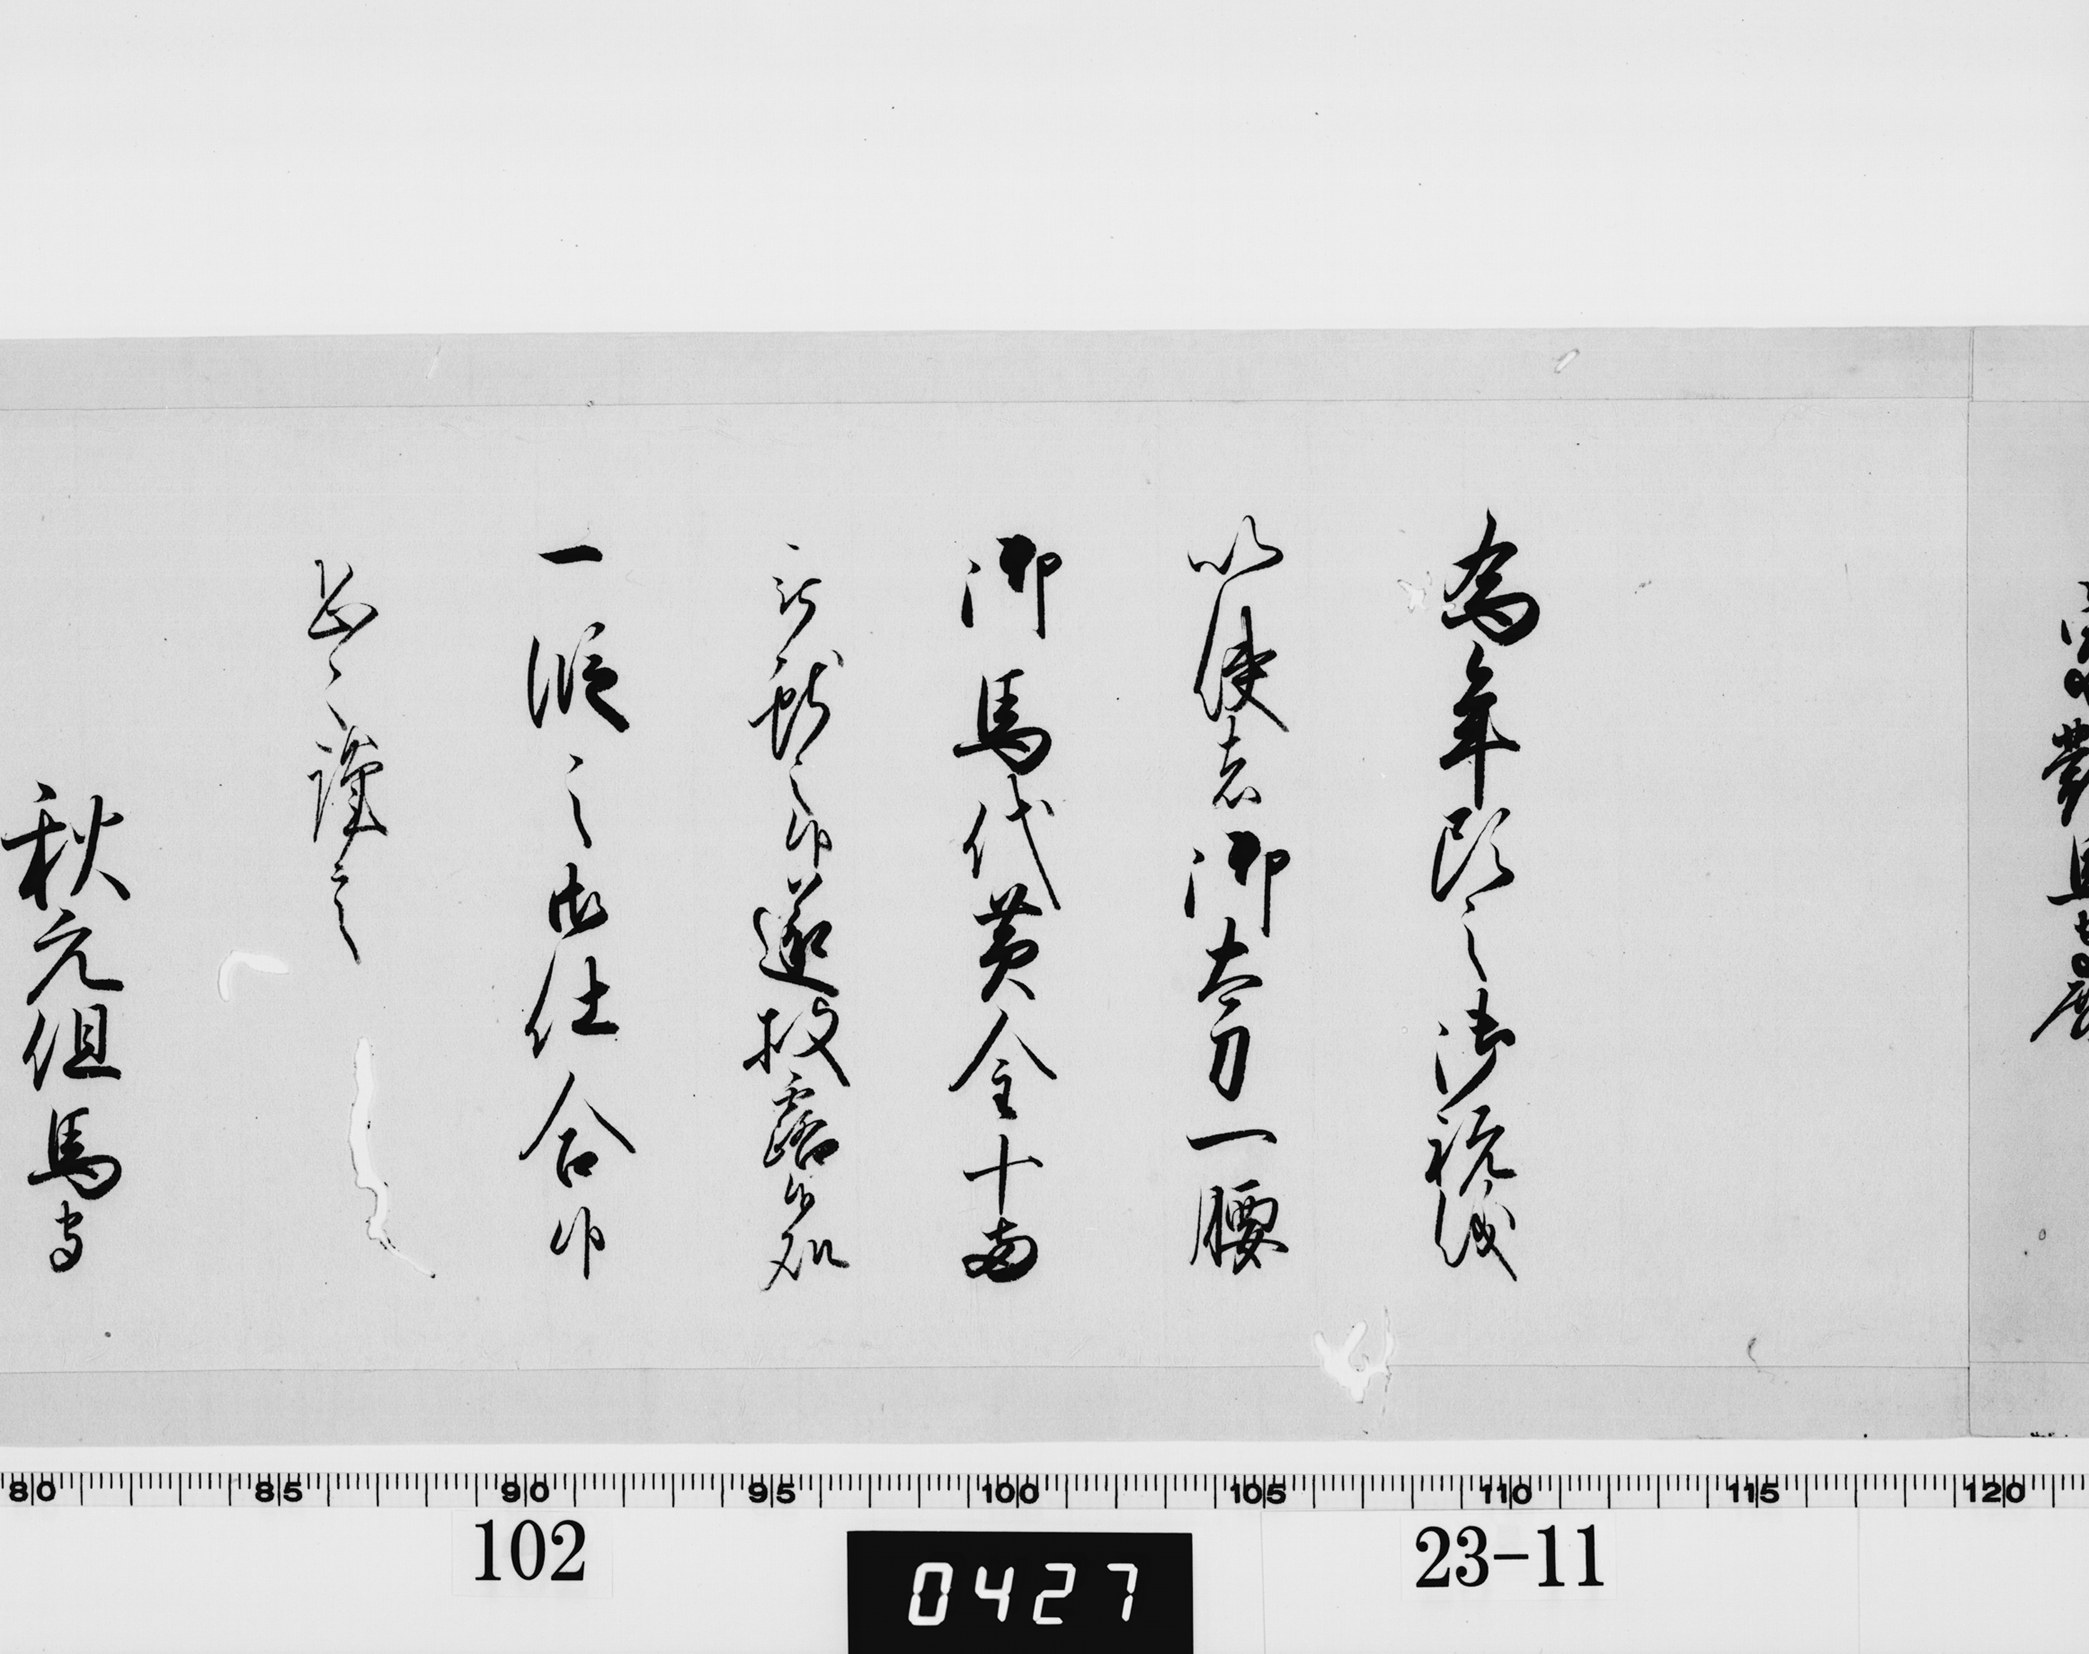 宗対馬守殿
為年頭之御祝儀
以使者御太刀一腰
御馬代黄金十両
被献之候遂披露候処
一段之御仕合候
恐々謹言
秋元但馬守
80 85 90 95 100 105 110 115 120
102
0427
23-11